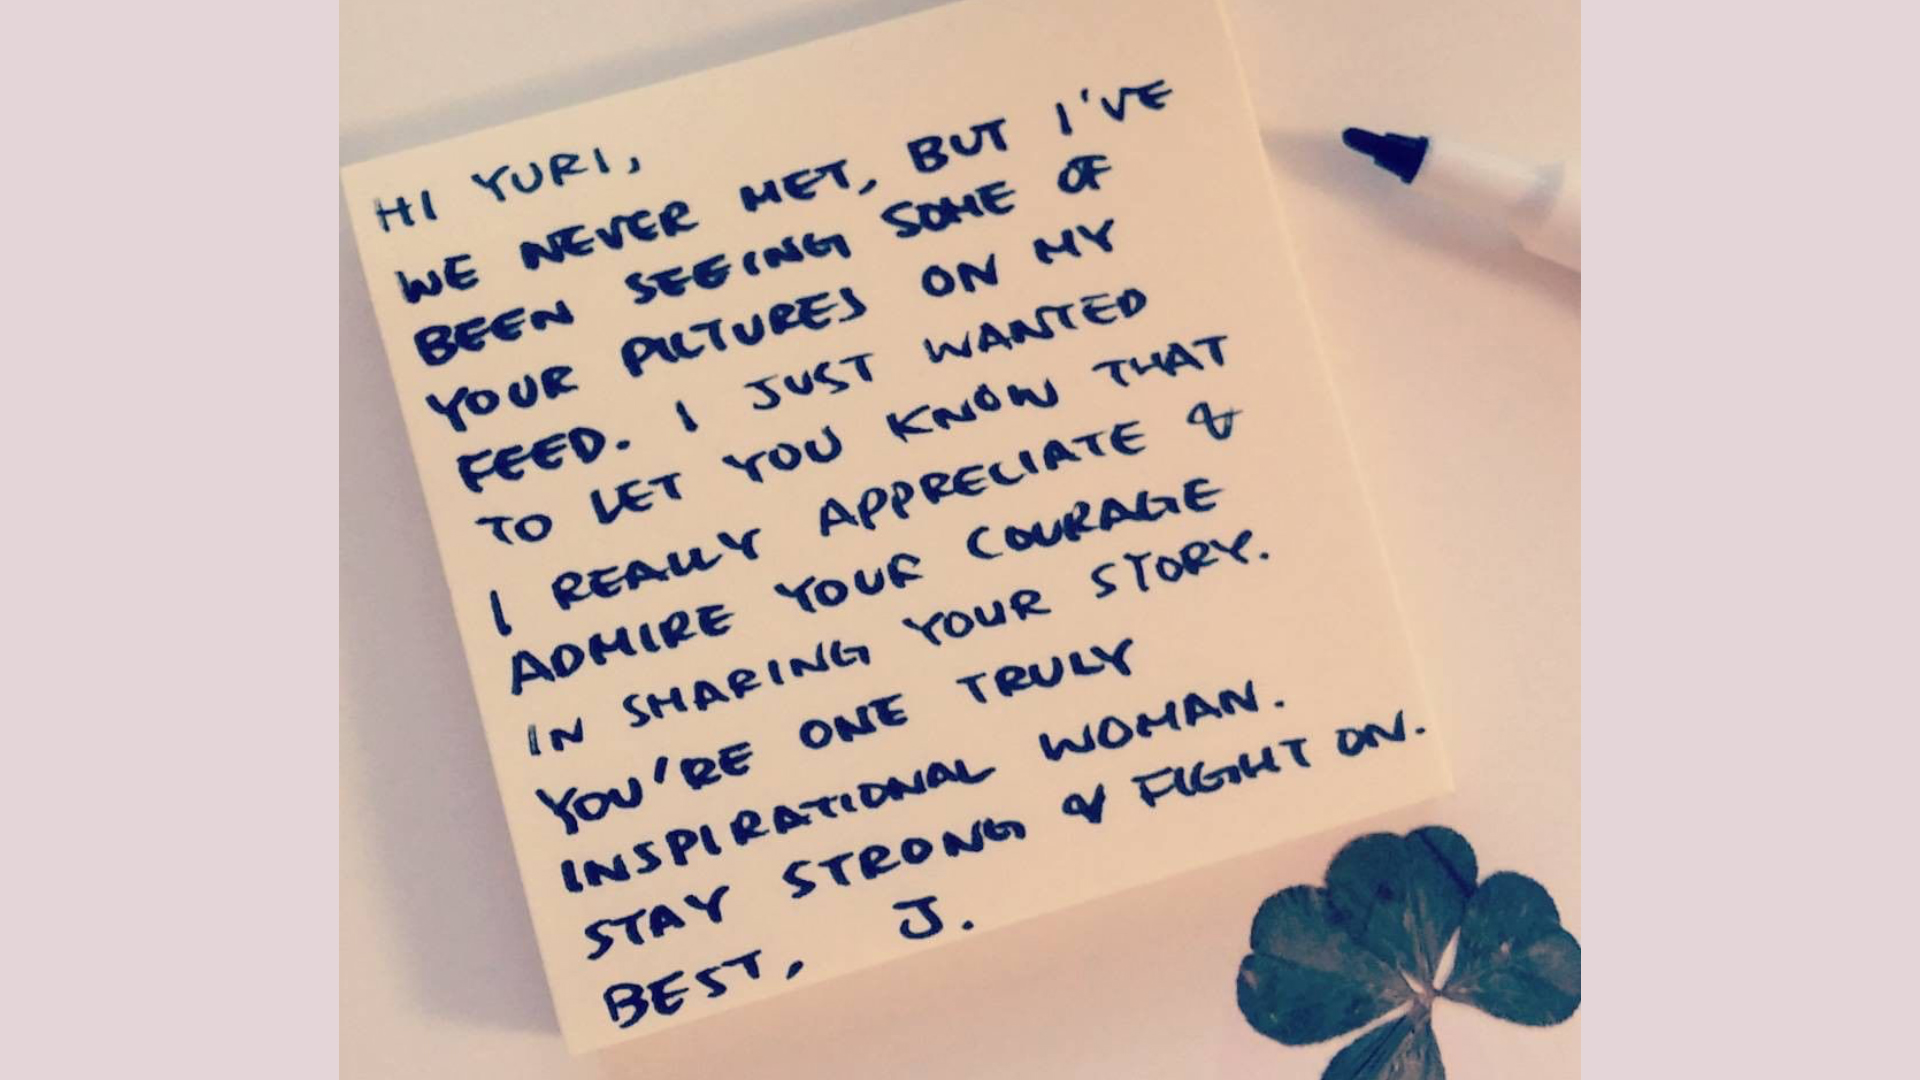 HI YURI,
WE NEVER MET, BUT I'VE
BEEN SEEING SOME OF
YOUR PICTURES ON MY
FEED. I JUST WANTED
TO LET YOU KNOW THAT
I REALLY APPRECIATE &
ADMIRE YOUR COURAGE
IN SHARING YOUR STORY.
YOU'RE ONE TRULY
INSPIRATIONAL WOMAN.
STAY STRONG & FIGHT ON.
BEST, J.